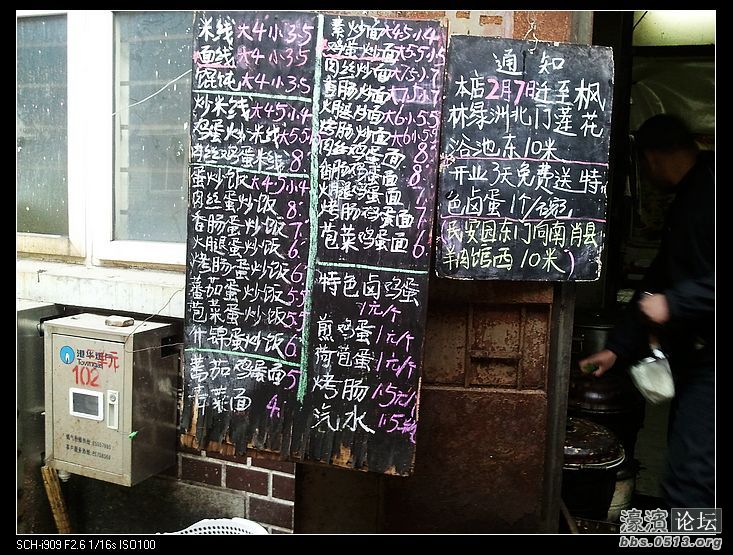 米线大4小3.5
面线大4小3.5
馄饨大4小3.5
炒米线大4.5小4
鸡蛋炒米线大5.5小5
肉丝鸡蛋米线8.
蛋炒饭大4.5小4
肉丝蛋炒饭8.
香肠蛋炒饭7.
火腿蛋炒饭6
烤肠蛋炒饭6
番茄蛋炒饭5.5
苞菜蛋炒饭5.5
什锦蛋炒饭6.
蕃茄鸡蛋面5
青菜面4.
素炒面大4.5小4
鸡蛋炒面大5.5小5
肉丝炒面大7.5小7
香肠炒面大7.5小7
火腿炒面大6小5.5
烤肠炒面大6小5.5
肉丝鸡蛋面8.
香肠鸡蛋面8
火腿鸡蛋面7
烤肠鸡蛋面7
苞菜鸡蛋面6
特色卤鸡蛋
1元/个
煎鸡蛋1元/个
荷苞蛋1元/个
烤肠1.5元/
汽水1.5
通知
本店2月7日迁至枫
林绿洲北门莲花
浴池东10米
开业3天免费送特
色卤蛋1个/碗,
(民安园东门向南肖县
羊肉馆西10米)
港华
单元
102
SCH-i909 F2.6 1/16s ISO100
濠滨论坛
bbs.0513.org